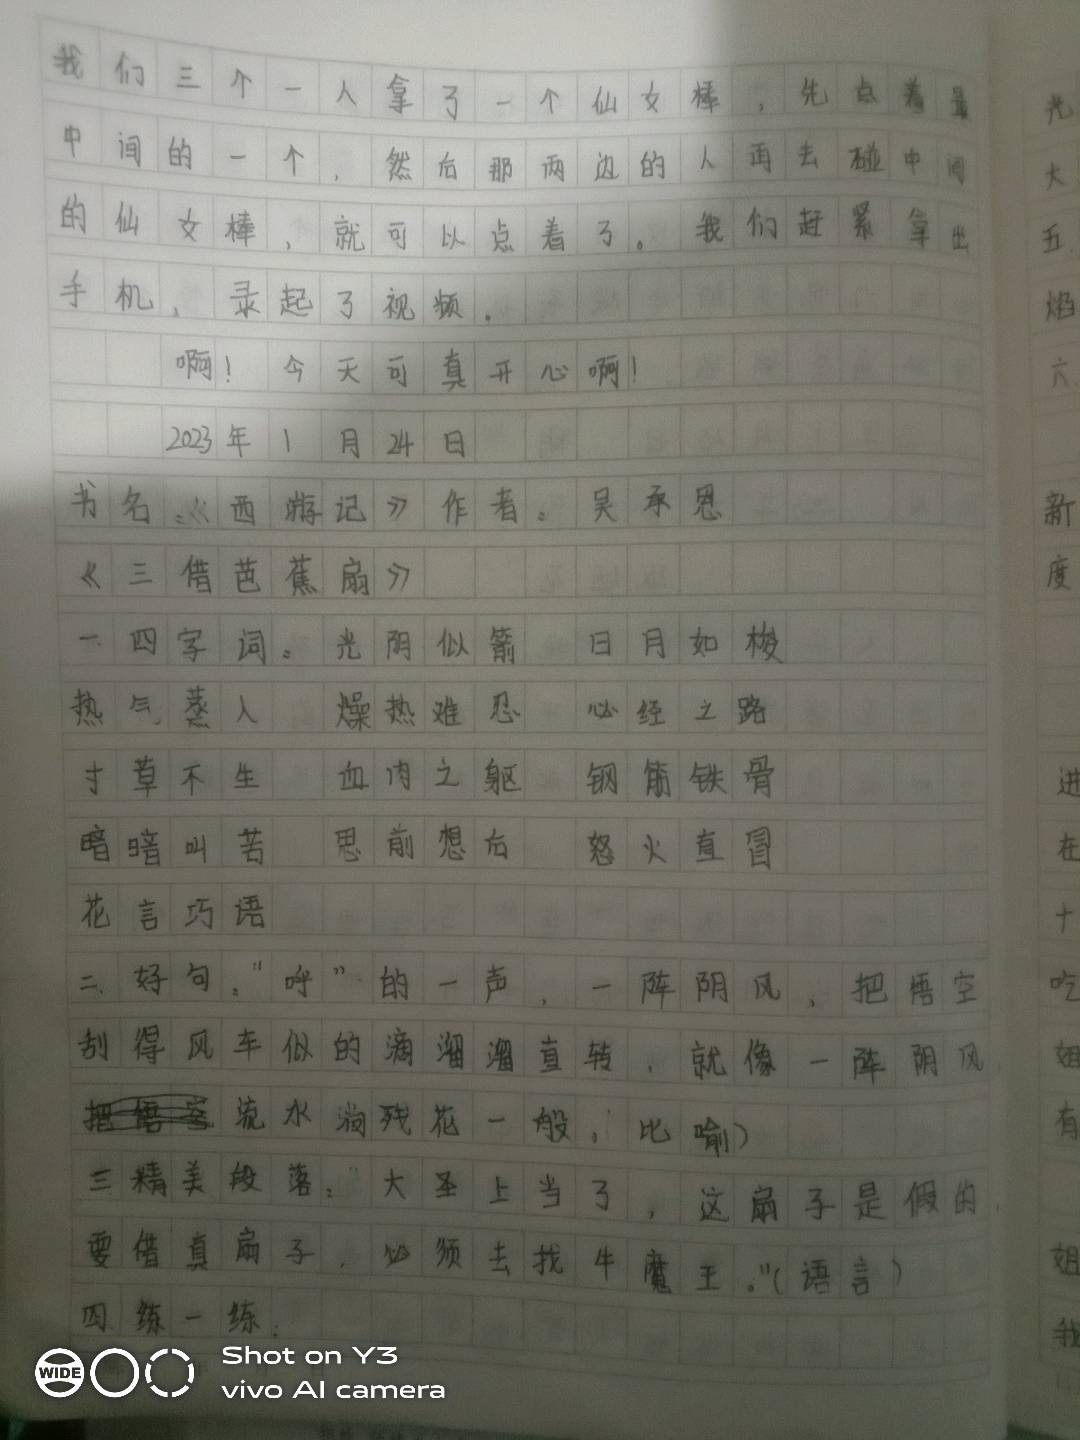 我们三个一人拿了一个仙女棒，先点着最
中间的一个，然后那两边的人再去碰中间
的仙女棒，就可以点着了。我们赶紧拿出
手机，录起了视频。
啊！今天可真开心啊！
2023年1月24日
书名：《西游记》作者：吴承恩
《三借芭蕉扇》
一.四字词：光阴似箭 日月如梭
热气蒸人 燥热难忍 必经之路
寸草不生 血肉之躯 钢筋铁骨
暗暗叫苦 思前想后 怒火直冒
花言巧语
二.好句："呼"的一声，一阵阴风，把悟空
刮得风车似的滴溜溜直转，就像一阵阴风
流水淌残花一般。比喻）
三精美段落："大圣上当了，这扇子是假的，
要借真扇子，必须去找牛魔王。"（语言）
四.练一练：
WIDE
Shot on Y3
vivo AI camera
光
大
五.
焰
六.
新
度
进
在
十
吃
姐
有
姐
我